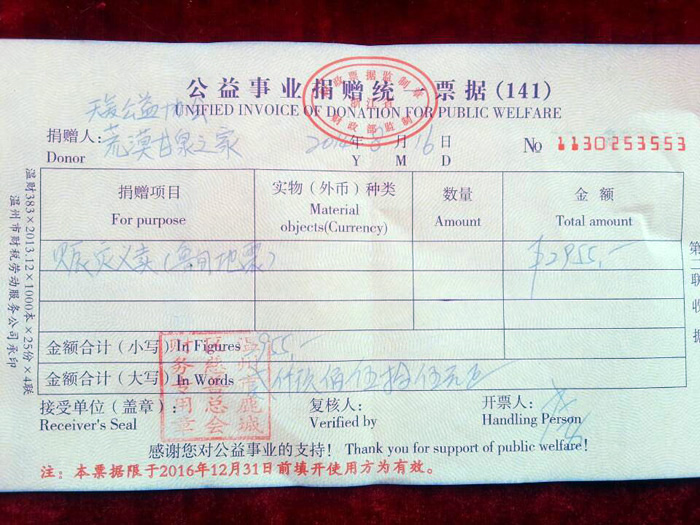 公益事业捐赠统一票据(141)
UNIFIED INVOICE OF DONATION FOR PUBLIC WELFARE
财政部监制
捐赠人：荒漠甘泉之家
Donor
2014年8月16日
Y M D
No 1130253553
捐赠项目 实物（外币）种类 数量 金额
For purpose Material objects(Currency) Amount Total amount
赈灾义卖(鲁甸地震) ¥2955,—
金额合计（小写）In Figures 2955,—
金额合计（大写）In Words 贰仟玖佰伍拾伍元正
接受单位（盖章）： 复核人： 开票人：
Receiver's Seal Verified by Handling Person
感谢您对公益事业的支持！ Thank you for support of public welfare!
注：本票据限于2016年12月31日前填开使用方为有效。
温财383×2013.12×1000本×25份×4联
温州市财税劳动服务公司承印
第二联 收据